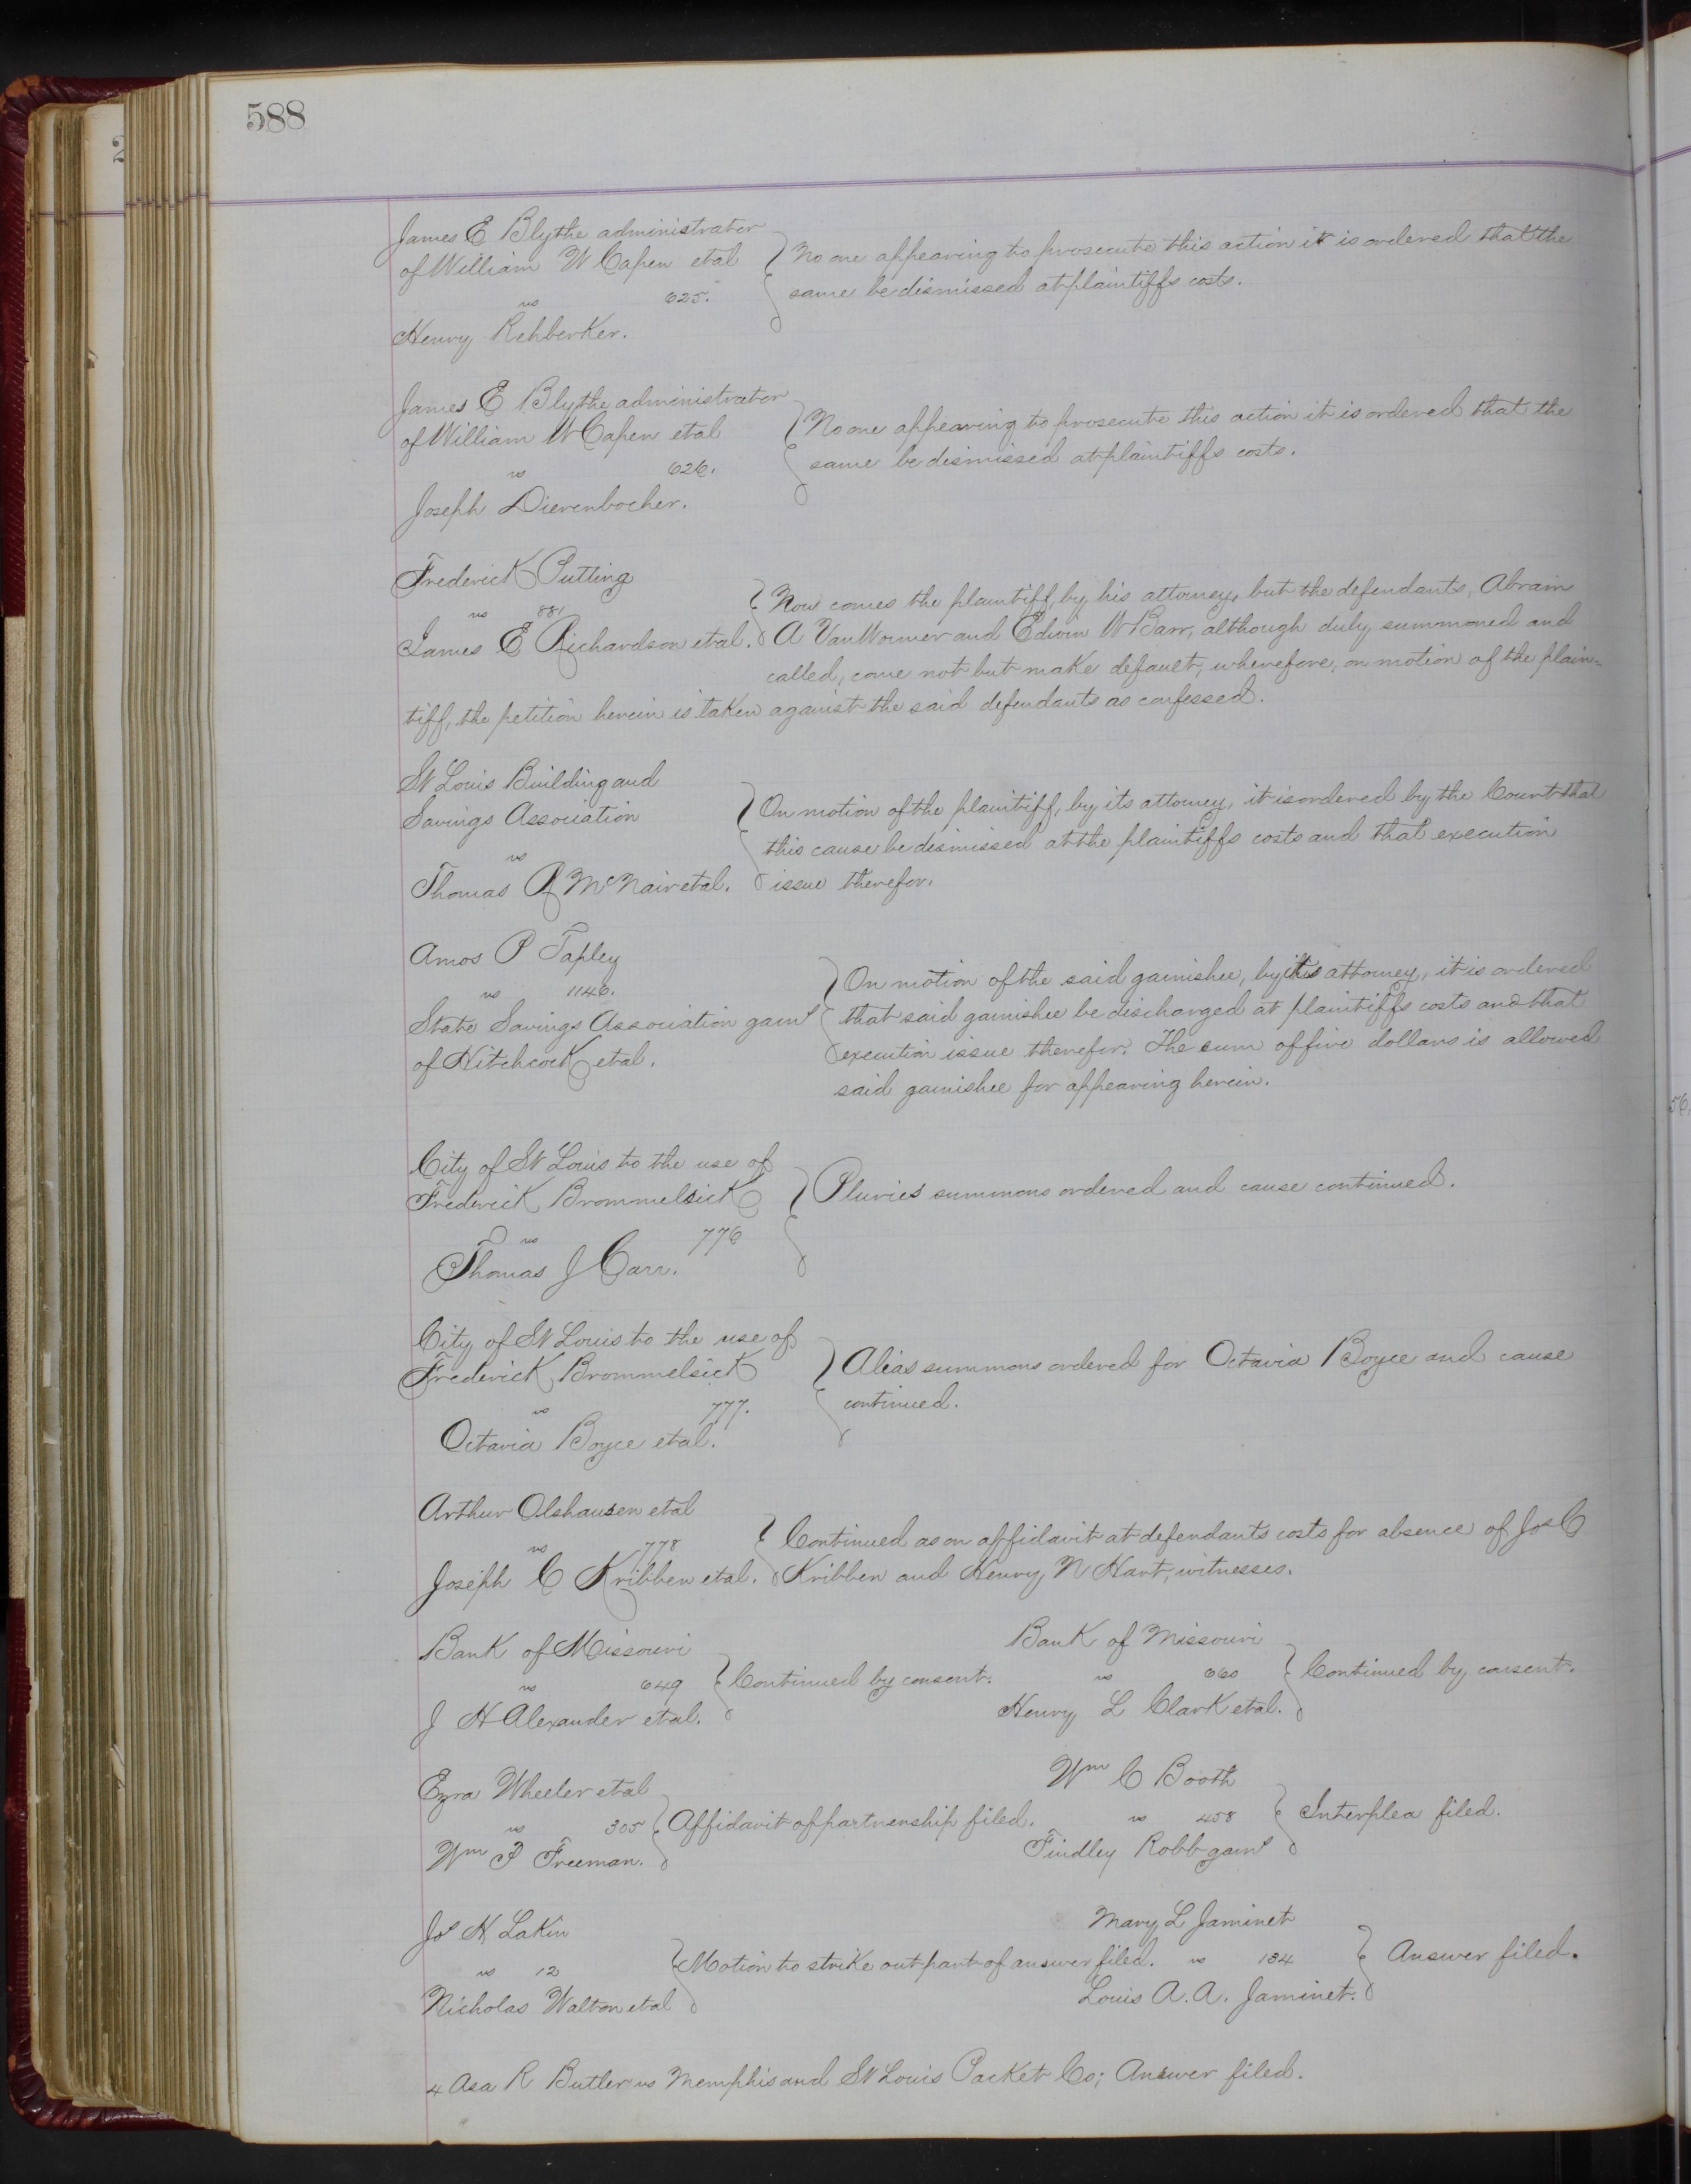 588
James E Blythe administrator
of William W Capen etal
vs 625.
Henry Rehberker.
No one appearing to prosecute this action it is ordered that the
same be dismissed at plaintiffs costs.
James E Blythe administrator
of William W Capen etal
vs 626.
Joseph Dierenbocher.
No one appearing to prosecute this action it is ordered that the
same be dismissed at plaintiffs costs.
Frederick Putting
vs 881
James E Richardson etal.
Now comes the plaintiff, by his attorney, but the defendants, Abram
A VanWormer and Edwin W Barr, although duly summoned and
called, come not but make default, wherefore, on motion of the plain=
tiff, the petition herein is taken against the said defendants as confessed.
St Louis Building and
Savings Association
vs
Thomas R McNair etal.
On motion of the plaintiff, by its attorney, it is ordered by the Court that
this cause be dismissed at the plaintiffs costs and that execution
issue therefor.
Amos P Tapley
vs 1146.
State Savings Association garnt
of Hitchcock etal.
On motion of the said garnishee, by its attorney, it is ordered
that said garnishee be discharged at plaintiffs costs and that
execution issue therefor. The sum of five dollars is allowed
said garnishee for appearing herein.
City of St Louis to the use of
Frederick Brommelsick
vs 776
Thomas J Carr.
Pluries summons ordered and cause continued.
City of St Louis to the use of
Frederick Brommelsick
vs 777.
Octavia Boyce etal.
Alias summons ordered for Octavia Boyce and cause
continued.
Arthur Olshausen etal
vs 778
Joseph C Kribben etal.
Continued as on affidavit at defendants costs for absence of Jos C
Kribben and Henry N Hart, witnesses.
Bank of Missouri
vs 649
J H Alexander etal.
Continued by consent.
Bank of Missouri
vs 660
Henry L Clark etal.
Continued by consent.
Ezra Wheeler etal
vs 305
Wm P Freeman.
Affidavit of partnership filed.
Wm C Booth
vs 458
Findley Robb garnt
Interplea filed.
Js H Lakin
vs 12
Nicholas Walton etal
Motion to strike out part of answer filed.
Mary L Jaminet
vs 184
Louis A. A. Jaminet.
Answer filed.
4 Asa R Butler vs Memphis and St Louis Packet Co; Answer filed.